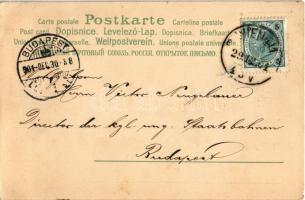 Carte postale Postkarte Cartolina postale
Post card. Dopisnice. Levelező-Lap. Dopisnica. Briefkaart
Weltpostverein. Union postale universelle
ОТКРЫТОЕ ПИСЬМО
BUDAPEST
901 DEC. 30
Herrn Victor Neugebauer
Director der kgl. ung. Staatsbahnen
Budapest